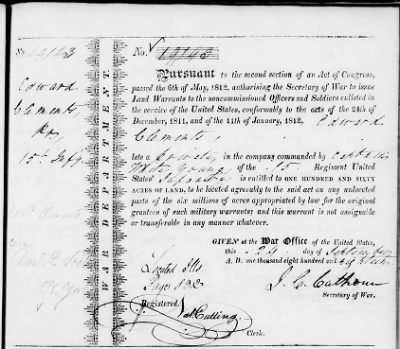 No. 19143
Edward
Clements
15th Infy
WAR DEPARTMENT.
No. 19143
Pursuant to the second section of an Act of Congress,
passed the 6th of May, 1812, authorising the Secretary of War to issue
Land Warrants to the noncommissioned Officers and Soldiers enlisted in
the service of the United States, conformably to the acts of the 24th
December, 1811, and of the 11th of January, 1812, Edward
Clements,
late a in the company commanded by Captain
Young of the 15 Regiment United
States' Infantry is entitled to ONE HUNDRED AND SIXTY
ACRES OF LAND, to be located agreeably to the said act on any unlocated
part of the six millions of acres appropriated by law for the original
grantees of such military warrants; and this warrant is not assignable
or transferable in any manner whatever.
GIVEN at the War Office of the United States,
this 24 day of September
A. D. one thousand eight hundred and
J. C. Calhoun
Secretary of War.
Located Ills
Page
Registered.
Clerk.